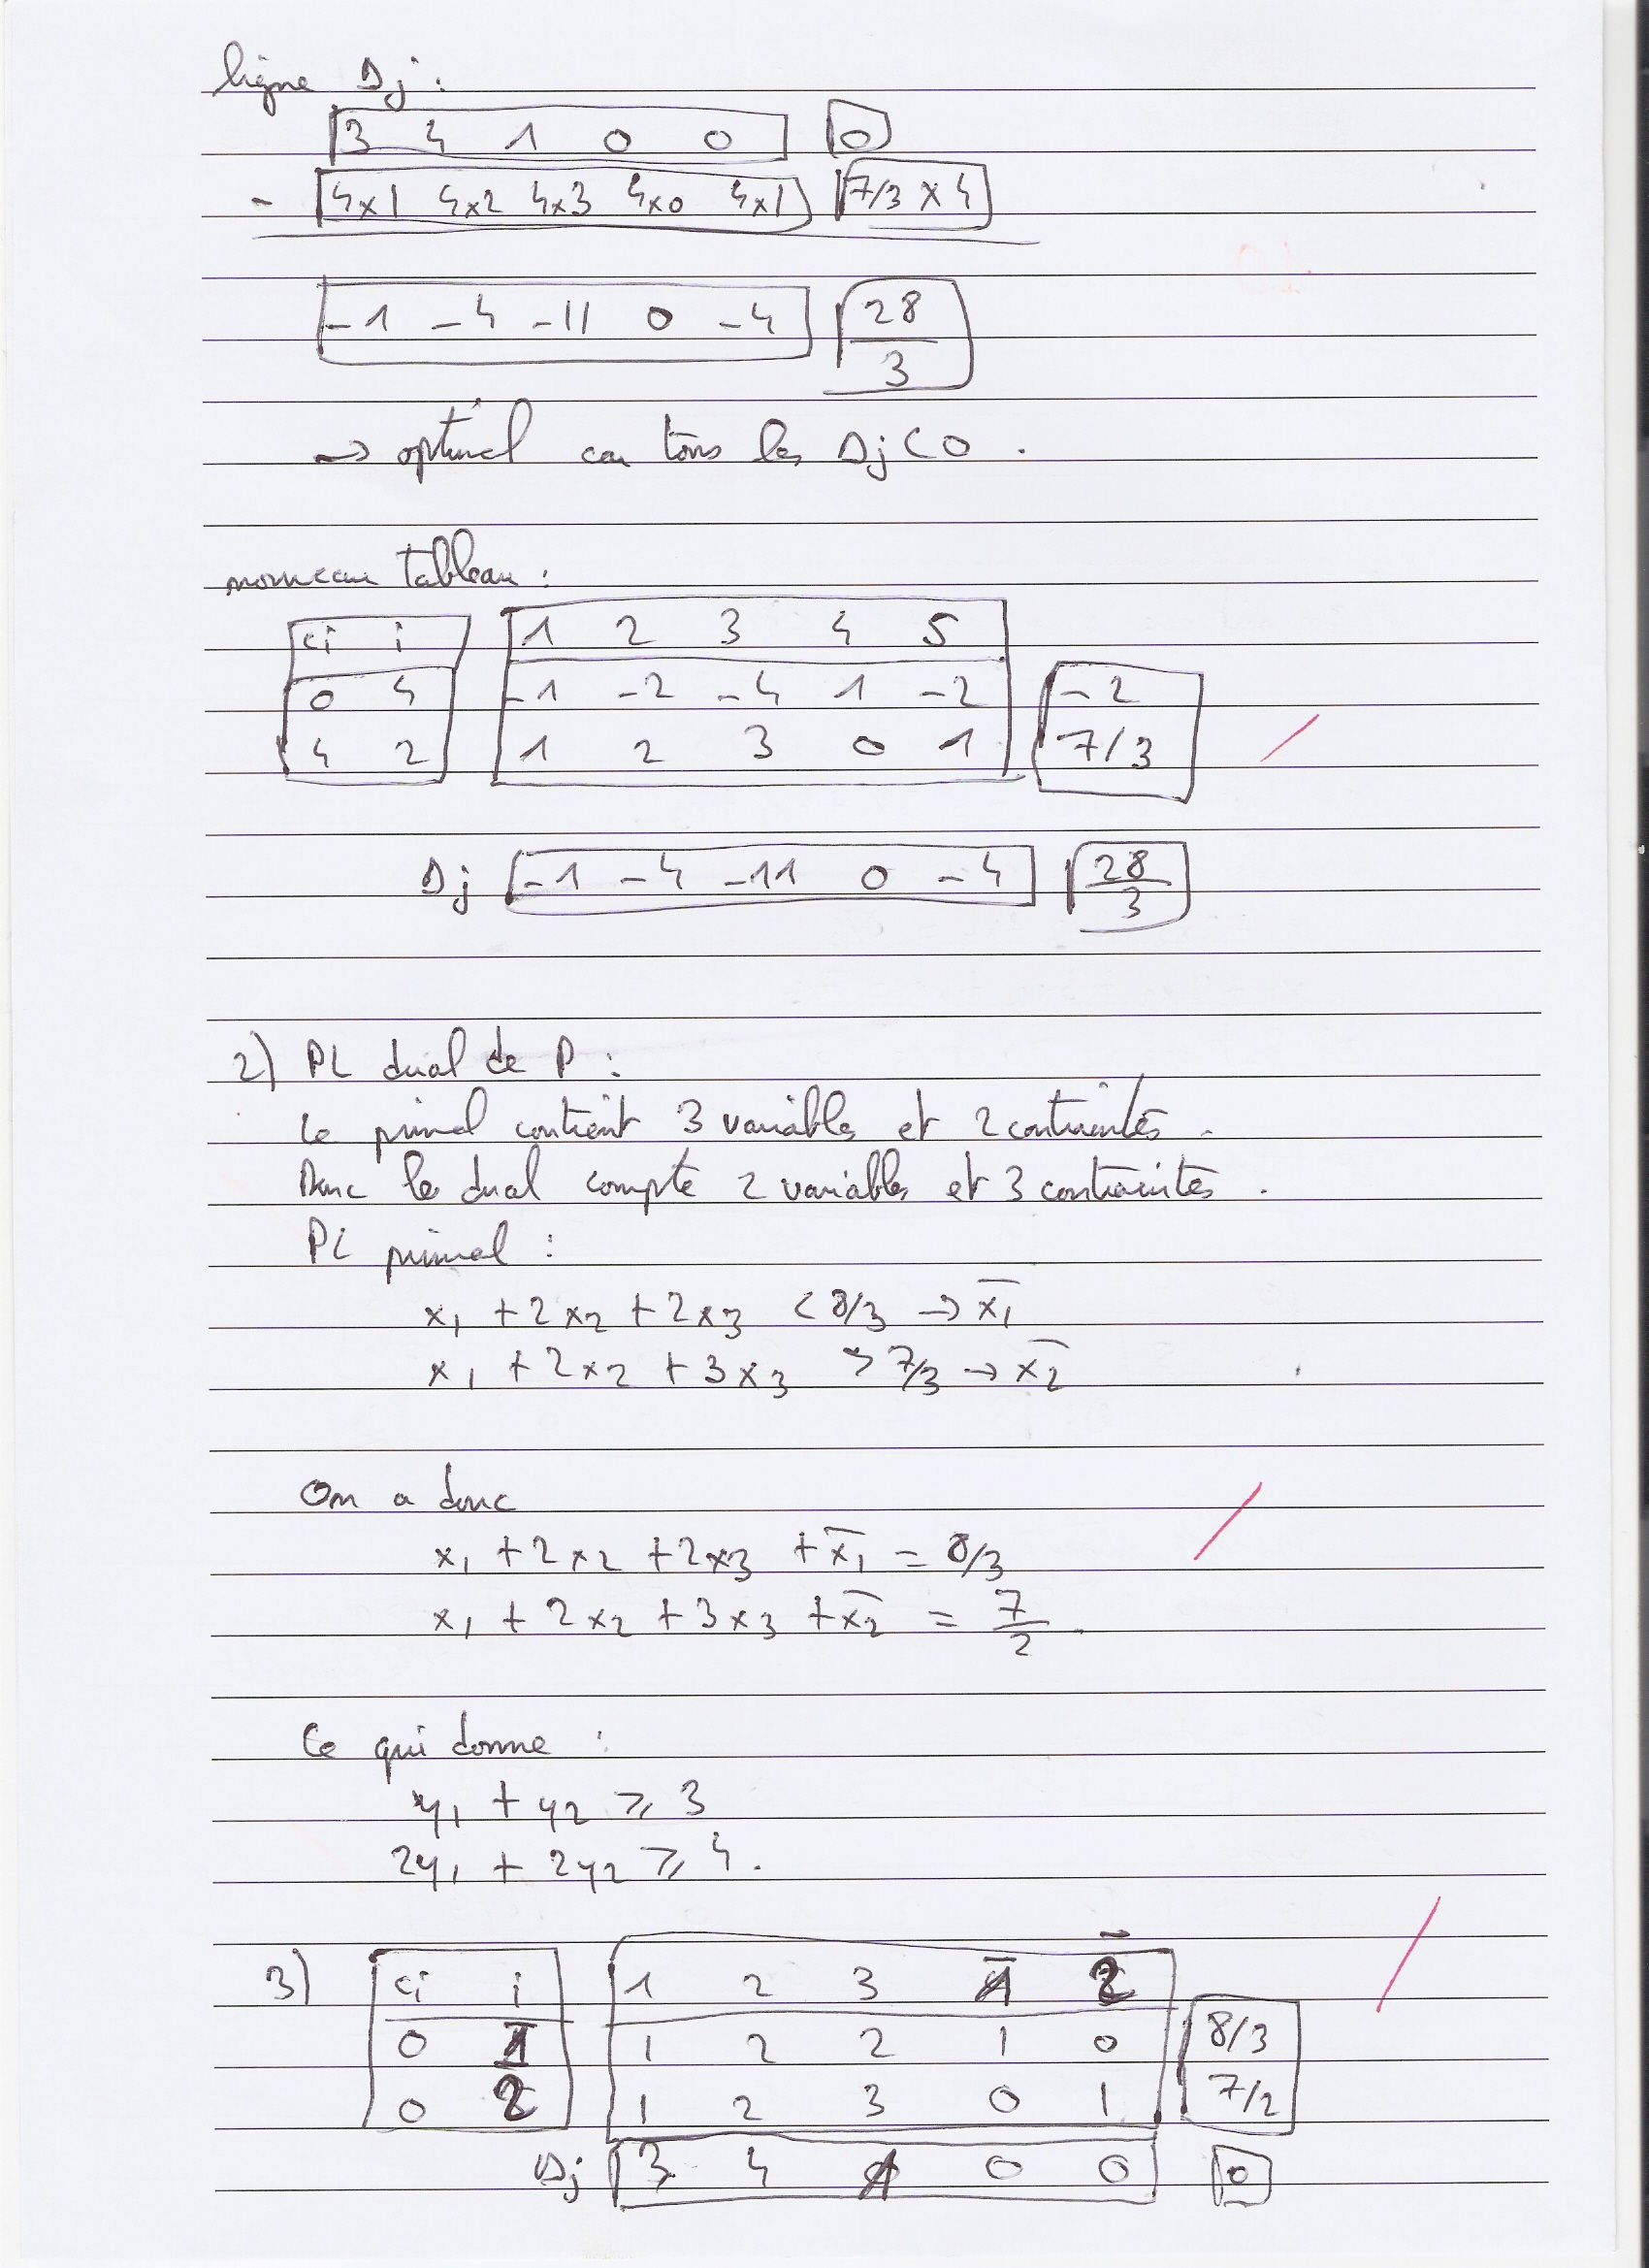 ligne Δj :
3 4 1 0 0 0
- 4x1 4x2 4x3 4x0 4x1 7/3 x 4
-1 -4 -11 0 -4 28/3
→ optimal car tous les Δj < 0 .
nouveau tableau :
ci i 1 2 3 4 5
0 4 -1 -2 -4 1 -2 -2
4 2 1 2 3 0 1 7/3
Δj -1 -4 -11 0 -4 28/3
2) PL dual de P :
Le primal contient 3 variables et 2 contraintes .
Donc le dual compte 2 variables et 3 contraintes .
PL primal :
x₁ + 2x₂ + 2x₃ < 8/3 → x̅₁
x₁ + 2x₂ + 3x₃ > 7/3 → x̅₂
On a donc
x₁ + 2x₂ + 2x₃ + x̅₁ = 8/3
x₁ + 2x₂ + 3x₃ + x̅₂ = 7/2 .
Ce qui donne :
y₁ + y₂ ⩾ 3
2y₁ + 2y₂ ⩾ 4 .
3) ci i 1 2 3 1̅ 2̅
0 1̅ 1 2 2 1 0 8/3
0 2̅ 1 2 3 0 1 7/2
Δj 3 4 1 0 0 0